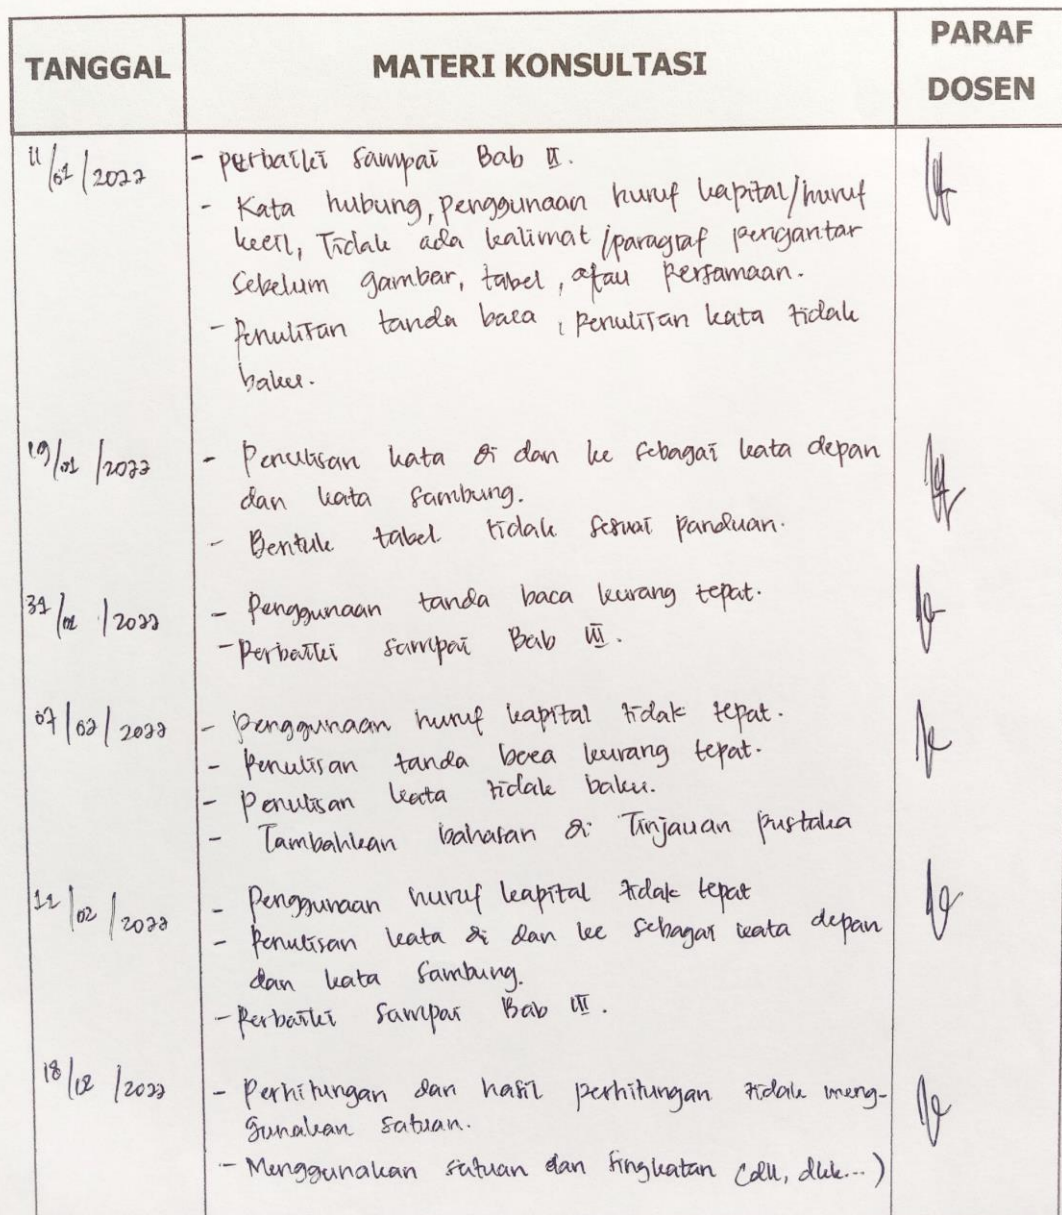 TANGGAL MATERI KONSULTASI PARAF DOSEN
11/01/2022 - perbaiki sampai Bab II.
- Kata hubung, penggunaan huruf kapital/huruf
kecil, Tidak ada kalimat/paragraf pengantar
sebelum gambar, tabel, atau persamaan.
- Penulisan tanda baca, penulisan kata tidak
baku.
19/01/2022 - Penulisan kata di dan ke sebagai kata depan
dan kata sambung.
- Bentuk tabel tidak sesuai panduan.
31/01/2022 - Penggunaan tanda baca kurang tepat.
- Perbaiki sampai Bab III.
07/02/2022 - Penggunaan huruf kapital tidak tepat.
- Penulisan tanda baca kurang tepat.
- Penulisan kata tidak baku.
- Tambahkan bahasan di Tinjauan pustaka
/02/2022 - Penggunaan huruf kapital tidak tepat
- Penulisan kata di dan ke sebagai kata depan
dan kata sambung.
- Perbaiki sampai Bab III.
18/02/2022 - Perhitungan dan hasil perhitungan tidak meng-
gunakan satuan.
- Menggunakan satuan dan singkatan (dll, dkk...)